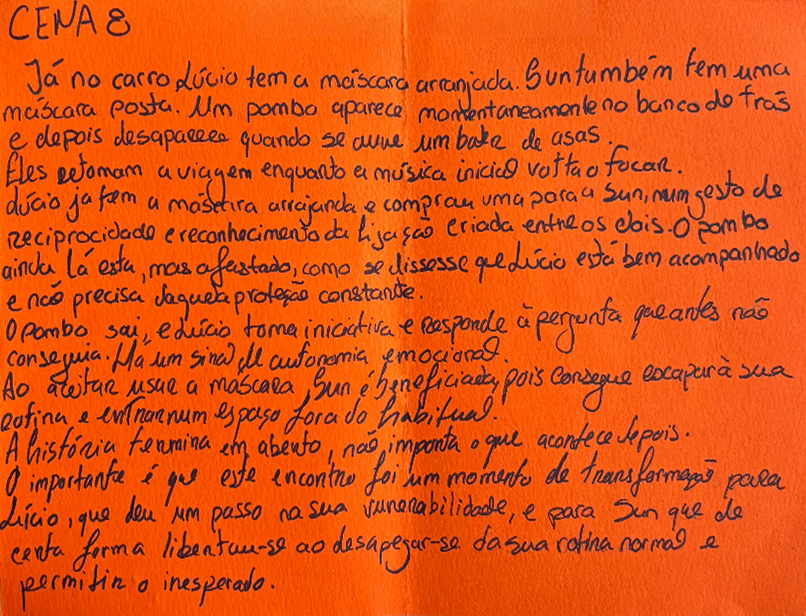 CENA 8
Já no carro Lúcio tem a máscara arranjada. Sun também tem uma
máscara posta. Um pombo aparece momentaneamente no banco de trás
e depois desaparece quando se ouve um bater de asas.
Eles retomam a viagem enquanto a música inicial volta a tocar.
Lúcio já tem a máscara arranjada e compram uma para a Sun, num gesto de
reciprocidade e reconhecimento da ligação criada entre os dois. O pombo
ainda lá está, mas afastado, como se dissesse que Lúcio está bem acompanhado
e não precisa daquela proteção constante.
O pombo sai, e Lúcio toma iniciativa e responde à pergunta que antes não
conseguia. Há um sinal de autonomia emocional.
Ao aceitar usar a máscara, Sun é beneficiada, pois consegue escapar à sua
rotina e entrar num espaço fora do habitual.
A história termina em aberto, não importa o que acontece depois.
O importante é que este encontro foi um momento de transformação para
Lúcio, que deu um passo na sua vunerabilidade, e para Sun que de
certa forma libertou-se ao desapegar-se da sua rotina normal e
permitir o inesperado.